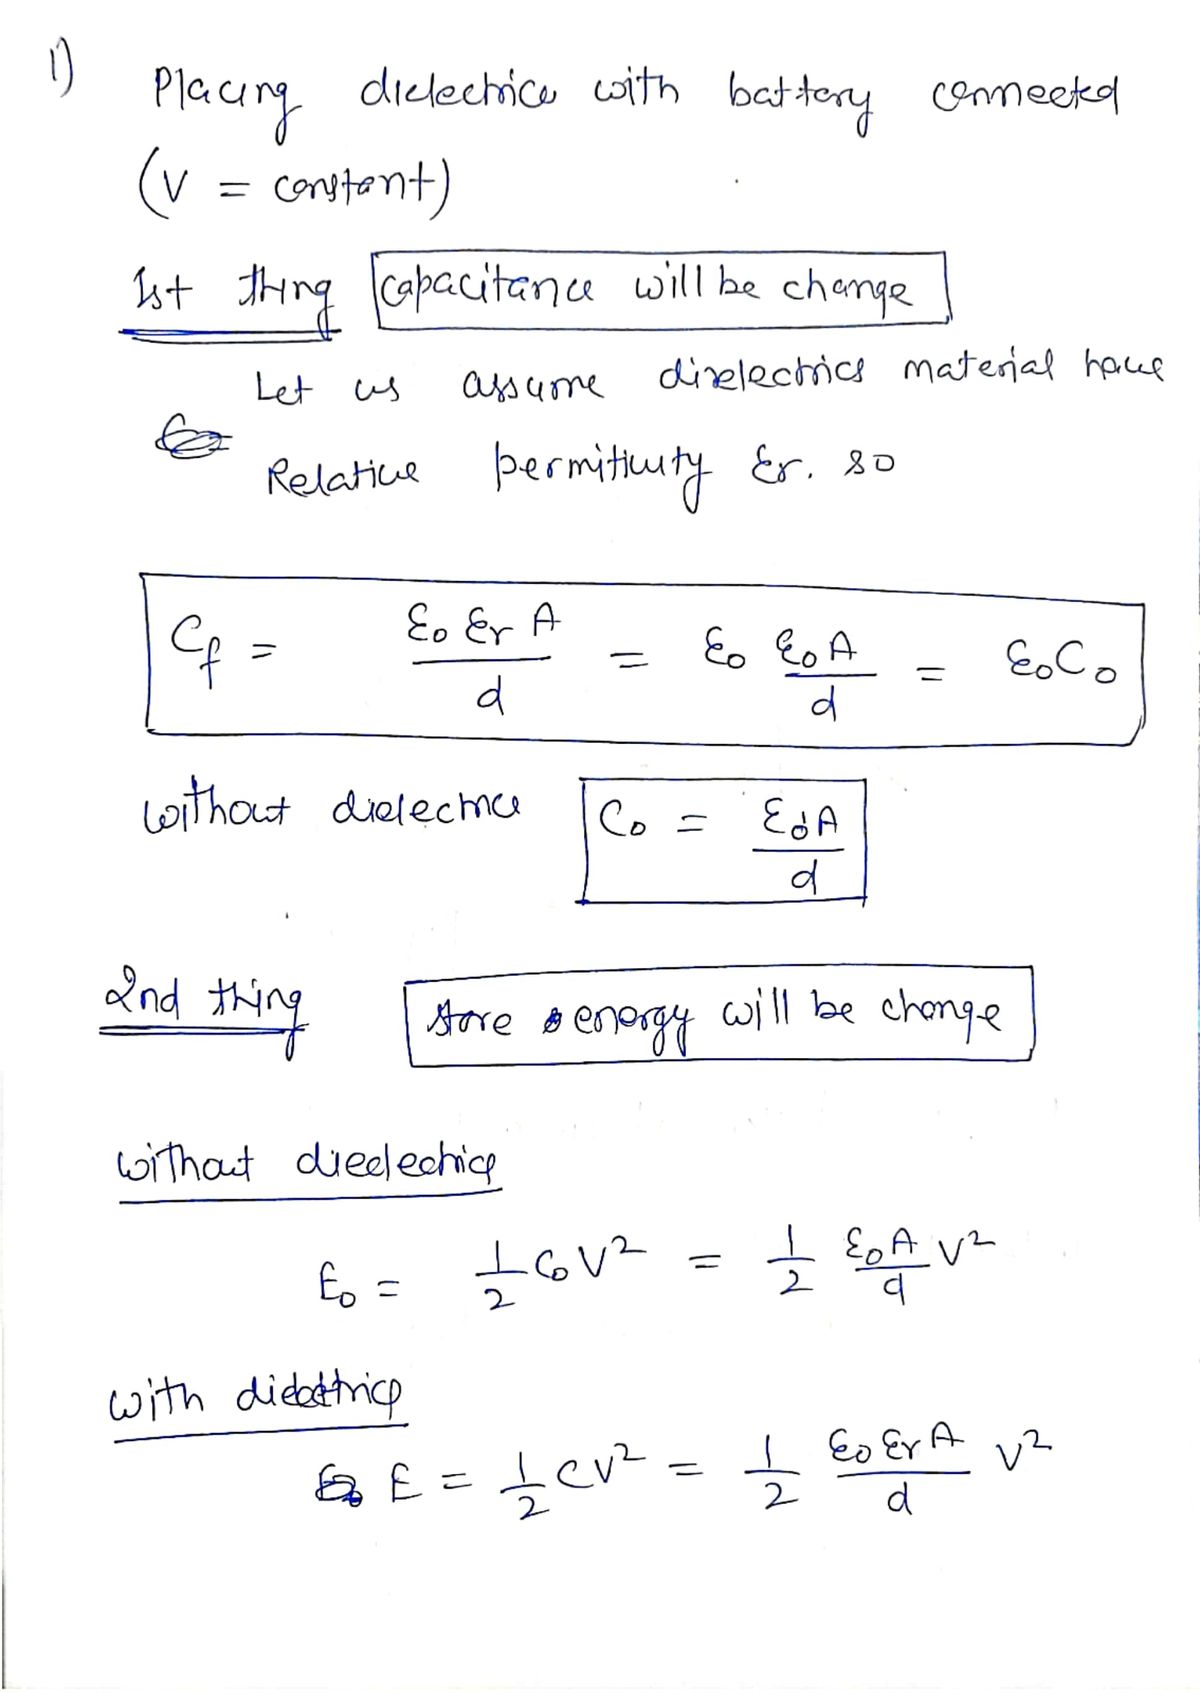 1)
Placing dielectrice with battery connected
(V = constant)
1st thing capacitance will be change
Let us assume dielectrics material have
Relative permitivity εr. so
Cf = ε0 εr A / d = ε0 ε0 A / d = ε0 C0
without dielectrice C0 = ε0 A / d
2nd thing store energy will be change
without dieelectrice
E0 = 1/2 C0 V² = 1/2 ε0 A / d V²
with dielectrice
E = 1/2 C V² = 1/2 ε0 εr A / d V²